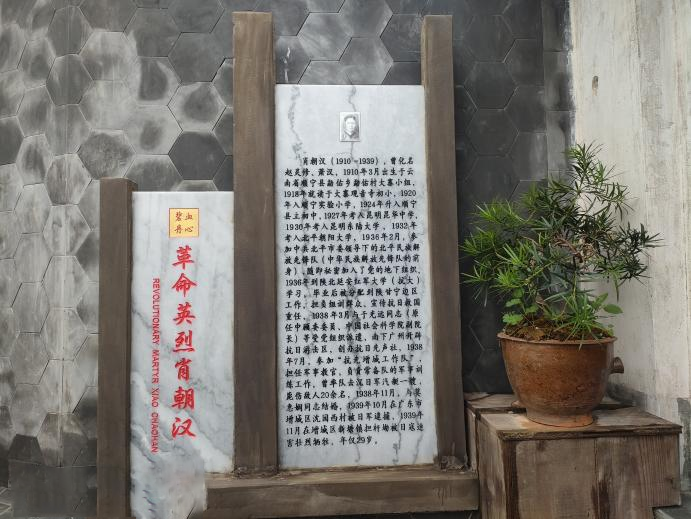 碧血
丹心
革命英烈肖朝汉
REVOLUTIONARY MARTYR XIAO CHAOHAN
肖朝汉(1910-1939),曾化名
赵灵修、萧汉,1910年3月出生于云
南省顺宁县勐佑乡勐佑村大寨小组,
1918年就读于大寨观音寺初小,1920
年入顺宁实验小学,1924年升入顺宁
县立初中,1927年考入昆明昆华中学,
1930年考入昆明东陆大学,1932年
考入北平朝阳大学,1936年2月,参
加中共北平市委领导下的北平民族解
放先锋队(中华民族解放先锋队的前
身),随即秘密加入了党的地下组织,
1936年到陕北延安红军大学(抗大)
学习,毕业后被分配到陕甘宁边区
工作,担负组训群众、宣传抗日救国
重任,1938年3月与于光远同志(原
任中顾委委员、中国社会科学院副院
长)等受党组织派遣,南下广州附近
抗日游击区,创办抗日先声社,1938
年7月,参加“抗先增城工作队”,
担任军事教官,负责常备队的军事训
练工作,曾率队击沉日军汽艇一艘,
毙伤敌人20余名,1938年11月,与吴
惠娴同志结婚,1939年10月在广东市
增城区沈岗西村被日军逮捕,1939年
11月在增城区新塘镇担杆坳被日寇迫
害壮烈牺牲,年仅29岁。